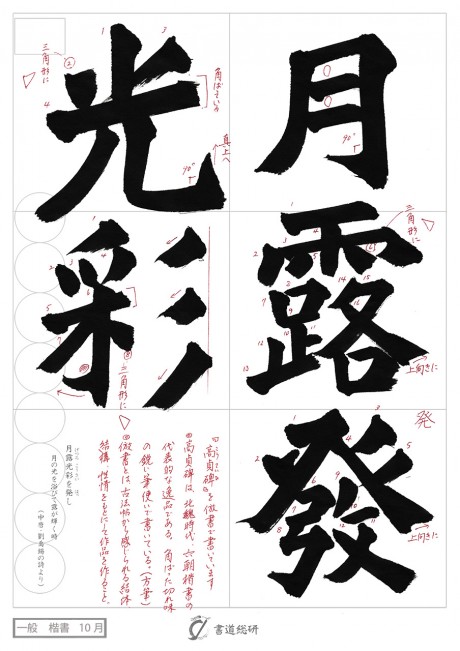 月露發
光彩
三角形に
角ばっている
真上へ
90°
90°
三角形に
上向きに
発
上向きに
三角形に
「高貞碑」を倣書で書いています
高貞碑は、北魏時代、六朝楷書の
代表的な逸品である。角ばった切れ味
の鋭い筆使いで書いている。(方筆)
倣書とは、古法帖から感じられる結体
結構、性情をもとにして作品を作ること。
月露光彩を発し
月の光を浴びて露が輝く時
(中唐・劉禹錫の詩より)
一般 楷書 10月
書道総研